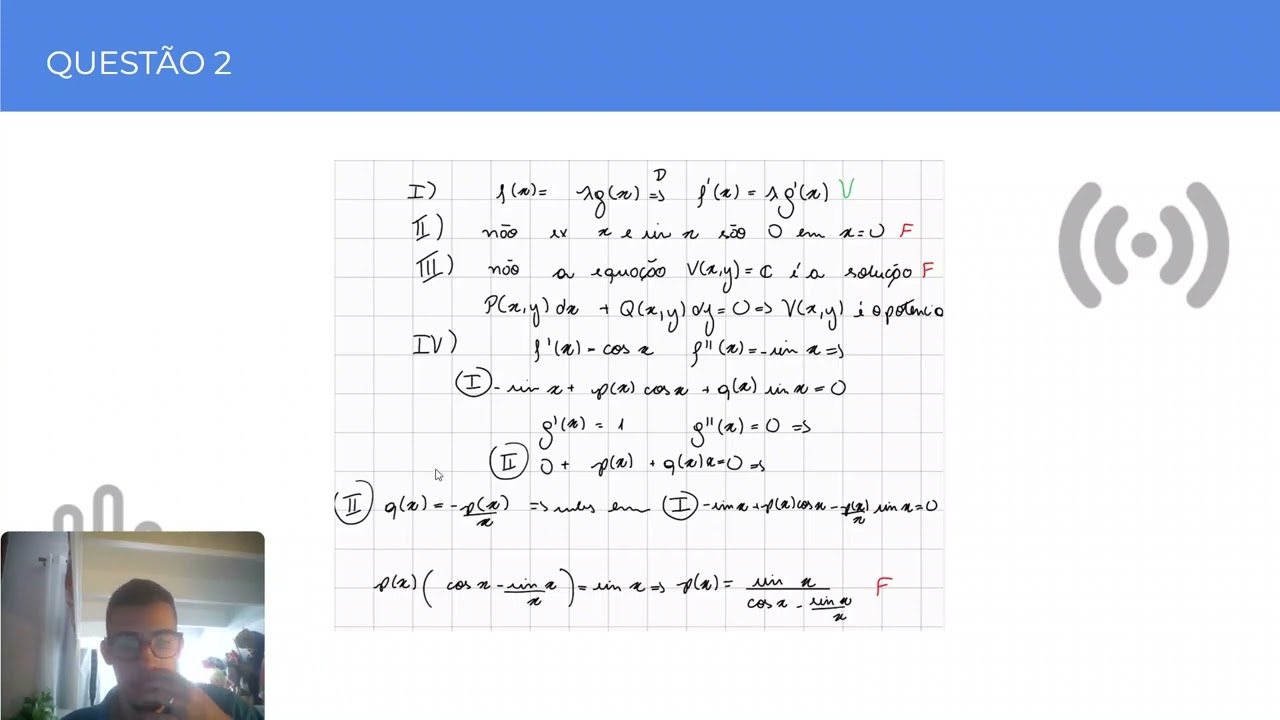 QUESTÃO 2
I) f(x) = λg(x) ⇒ᴰ f'(x) = λg'(x) V
II) não ex x e sin x são 0 em x=0 F
III) não a equação V(x,y) = C é a solução F
P(x,y) dx + Q(x,y) dy = 0 ⇒ V(x,y) é o potencia
IV) f'(x) = cos x f''(x) = -sin x ⇒
(I) - sin x + p(x) cos x + q(x) sin x = 0
g'(x) = 1 g''(x) = 0 ⇒
(II) 0 + p(x) + q(x)x = 0 ⇒
(II) q(x) = -p(x)/x ⇒ subs em (I) -sin x + p(x) cos x - p(x)/x sin x = 0
p(x) ( cos x - sin x/x ) = sin x ⇒ p(x) = sin x / (cos x - sin x/x) F